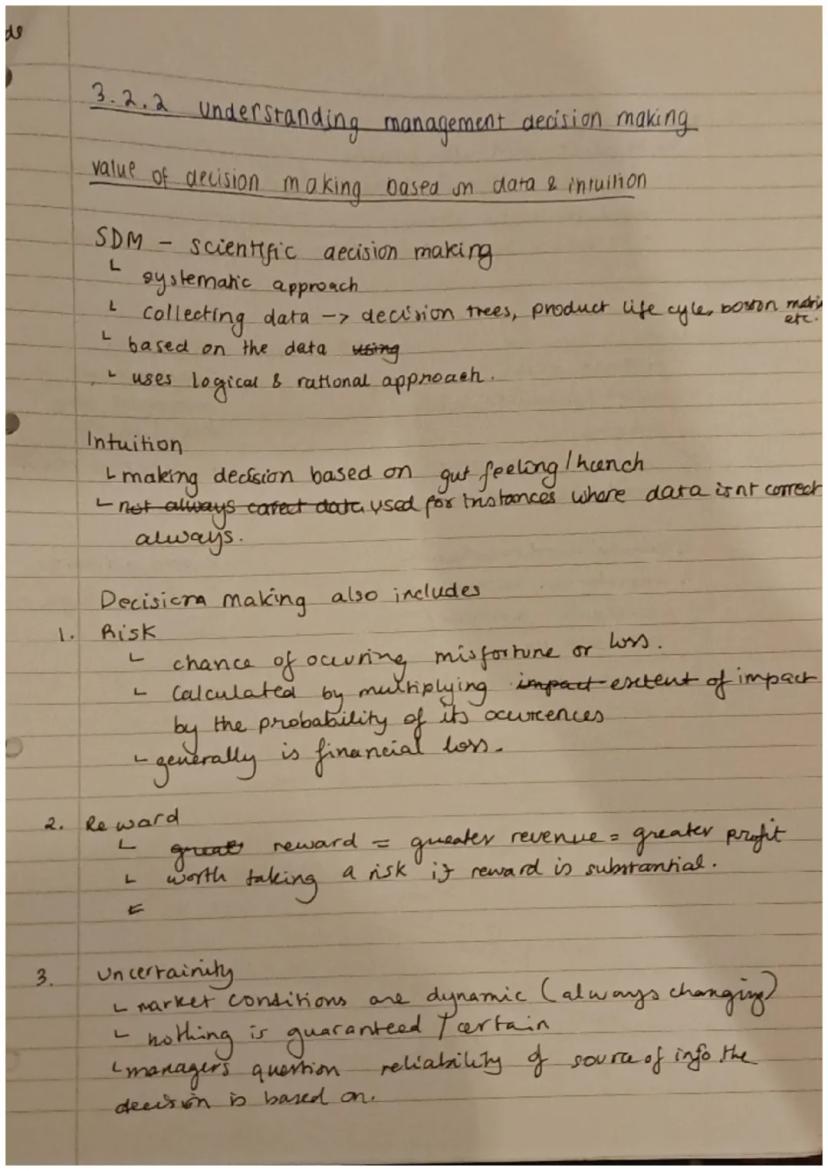 de
3.2.2 understanding management decision making
value of decision making based on data & intuition
SDM - scientific decision making
└ systematic approach
└ collecting data -> decision trees, product life cyle, boston matrix
etc.
└ based on the data using
└ uses logical & rational approach.
Intuition
└ making decision based on gut feeling / hunch
└ not always corect data used for instances where data isnt correct
always.
Decision making also includes
1. Risk
└ chance of occuring misfortune or loss.
└ calculated by multiplying impact extent of impact
by the probability of its ocurences
└ generally is financial loss.
2. Reward
└ great reward = greater revenue = greater profit
└ worth taking a risk if reward is substantial.
└
3. Uncertainity
└ market conditions are dynamic (always changing)
└ nothing is guaranteed / certain
└ managers question reliability of source of info the
decision is based on.